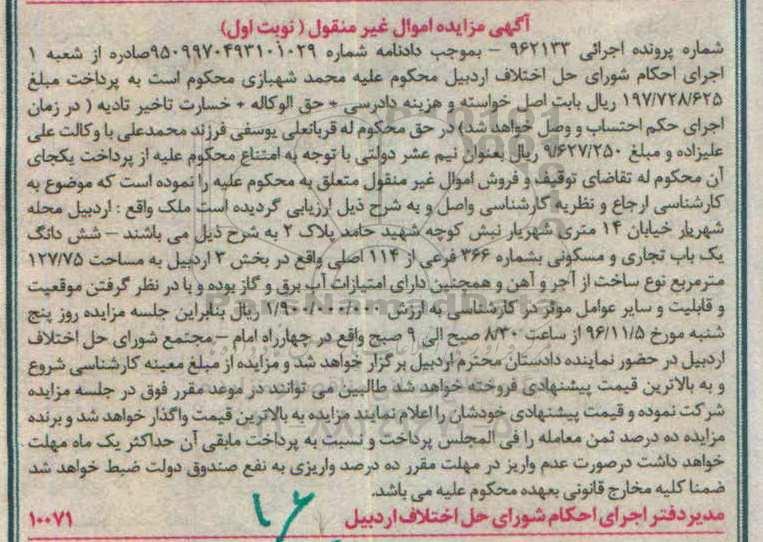 آگهی مزایده اموال غیر منقول (نوبت اول)
شماره پرونده اجرائی ۹۶۲۱۳۳ - بموجب دادنامه شماره ۹۵۰۹۹۷۰۴۹۳۱۰۱۰۲۹صادره از شعبه ۱
اجرای احکام شورای حل اختلاف اردبیل محکوم علیه محمد شهبازی محکوم است به پرداخت مبلغ
۱۹۷/۷۲۸/۶۲۵ ریال بابت اصل خواسته و هزینه دادرسی + حق الوکاله + خسارت تاخیر تادیه ( در زمان
اجرای حکم احتساب و وصل خواهد شد) در حق محکوم له قربانعلی یوسفی فرزند محمدعلی با وکالت علی
علیزاده و مبلغ ۹/۶۲۷/۲۵۰ ریال بعنوان نیم عشر دولتی با توجه به امتناع محکوم علیه از پرداخت یکجای
آن محکوم له تقاضای توقیف و فروش اموال غیر منقول متعلق به محکوم علیه را نموده است که موضوع به
کارشناسی ارجاع و نظریه کارشناسی واصل و به شرح ذیل ارزیابی گردیده است ملک واقع : اردبیل محله
شهریار خیابان ۱۴ متری شهریار نبش کوچه شهید حامد پلاک ۲ به شرح ذیل می باشند - شش دانگ
یک باب تجاری و مسکونی بشماره ۳۶۶ فرعی از ۱۱۴ اصلی واقع در بخش ۳ اردبیل به مساحت ۱۲۷/۷۵
مترمربع نوع ساخت از آجر و آهن و همچنین دارای امتیازات آب برق و گاز بوده و با در نظر گرفتن موقعیت
و قابلیت و سایر عوامل موثر در کارشناسی به ارزش ۱/۹۰۰/۰۰۰/۰۰۰ ریال بنابراین جلسه مزایده روز پنج
شنبه مورخ ۹۶/۱۱/۵ از ساعت ۸/۳۰ صبح الی ۹ صبح واقع در چهارراه امام - مجتمع شورای حل اختلاف
اردبیل در حضور نماینده دادستان محترم اردبیل برگزار خواهد شد و مزایده از مبلغ معینه کارشناسی شروع
و به بالاترین قیمت پیشنهادی فروخته خواهد شد طالبین می توانند در موعد مقرر فوق در جلسه مزایده
شرکت نموده و قیمت پیشنهادی خودشان را اعلام نمایند مزایده به بالاترین قیمت واگذار خواهد شد و برنده
مزایده ده درصد ثمن معامله را فی المجلس پرداخت و نسبت به پرداخت مابقی آن حداکثر یک ماه مهلت
خواهد داشت درصورت عدم واریز در مهلت مقرر ده درصد واریزی به نفع صندوق دولت ضبط خواهد شد
ضمنا کلیه مخارج قانونی بعهده محکوم علیه می باشد.
مدیردفتر اجرای احکام شورای حل اختلاف اردبیل ۱۰۰۷۱
ParsNamadData